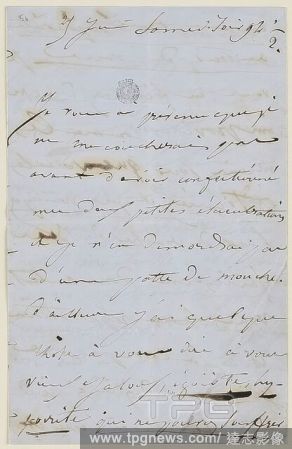 9 Juin Samedi soir 9h 1/2.
Je vous ai prévenu que je
ne me coucherais pas
avant d'avoir confectionné
mes deux petites élucubrations
et je n'en démordrai pas
d'une patte de mouche.
D'ailleurs j'ai quelque
chose à vous dire à vous
vieux jaloux, égoïste, hy-
pocrite qui ne
TPG
www.tpgnews.com / 達志影像